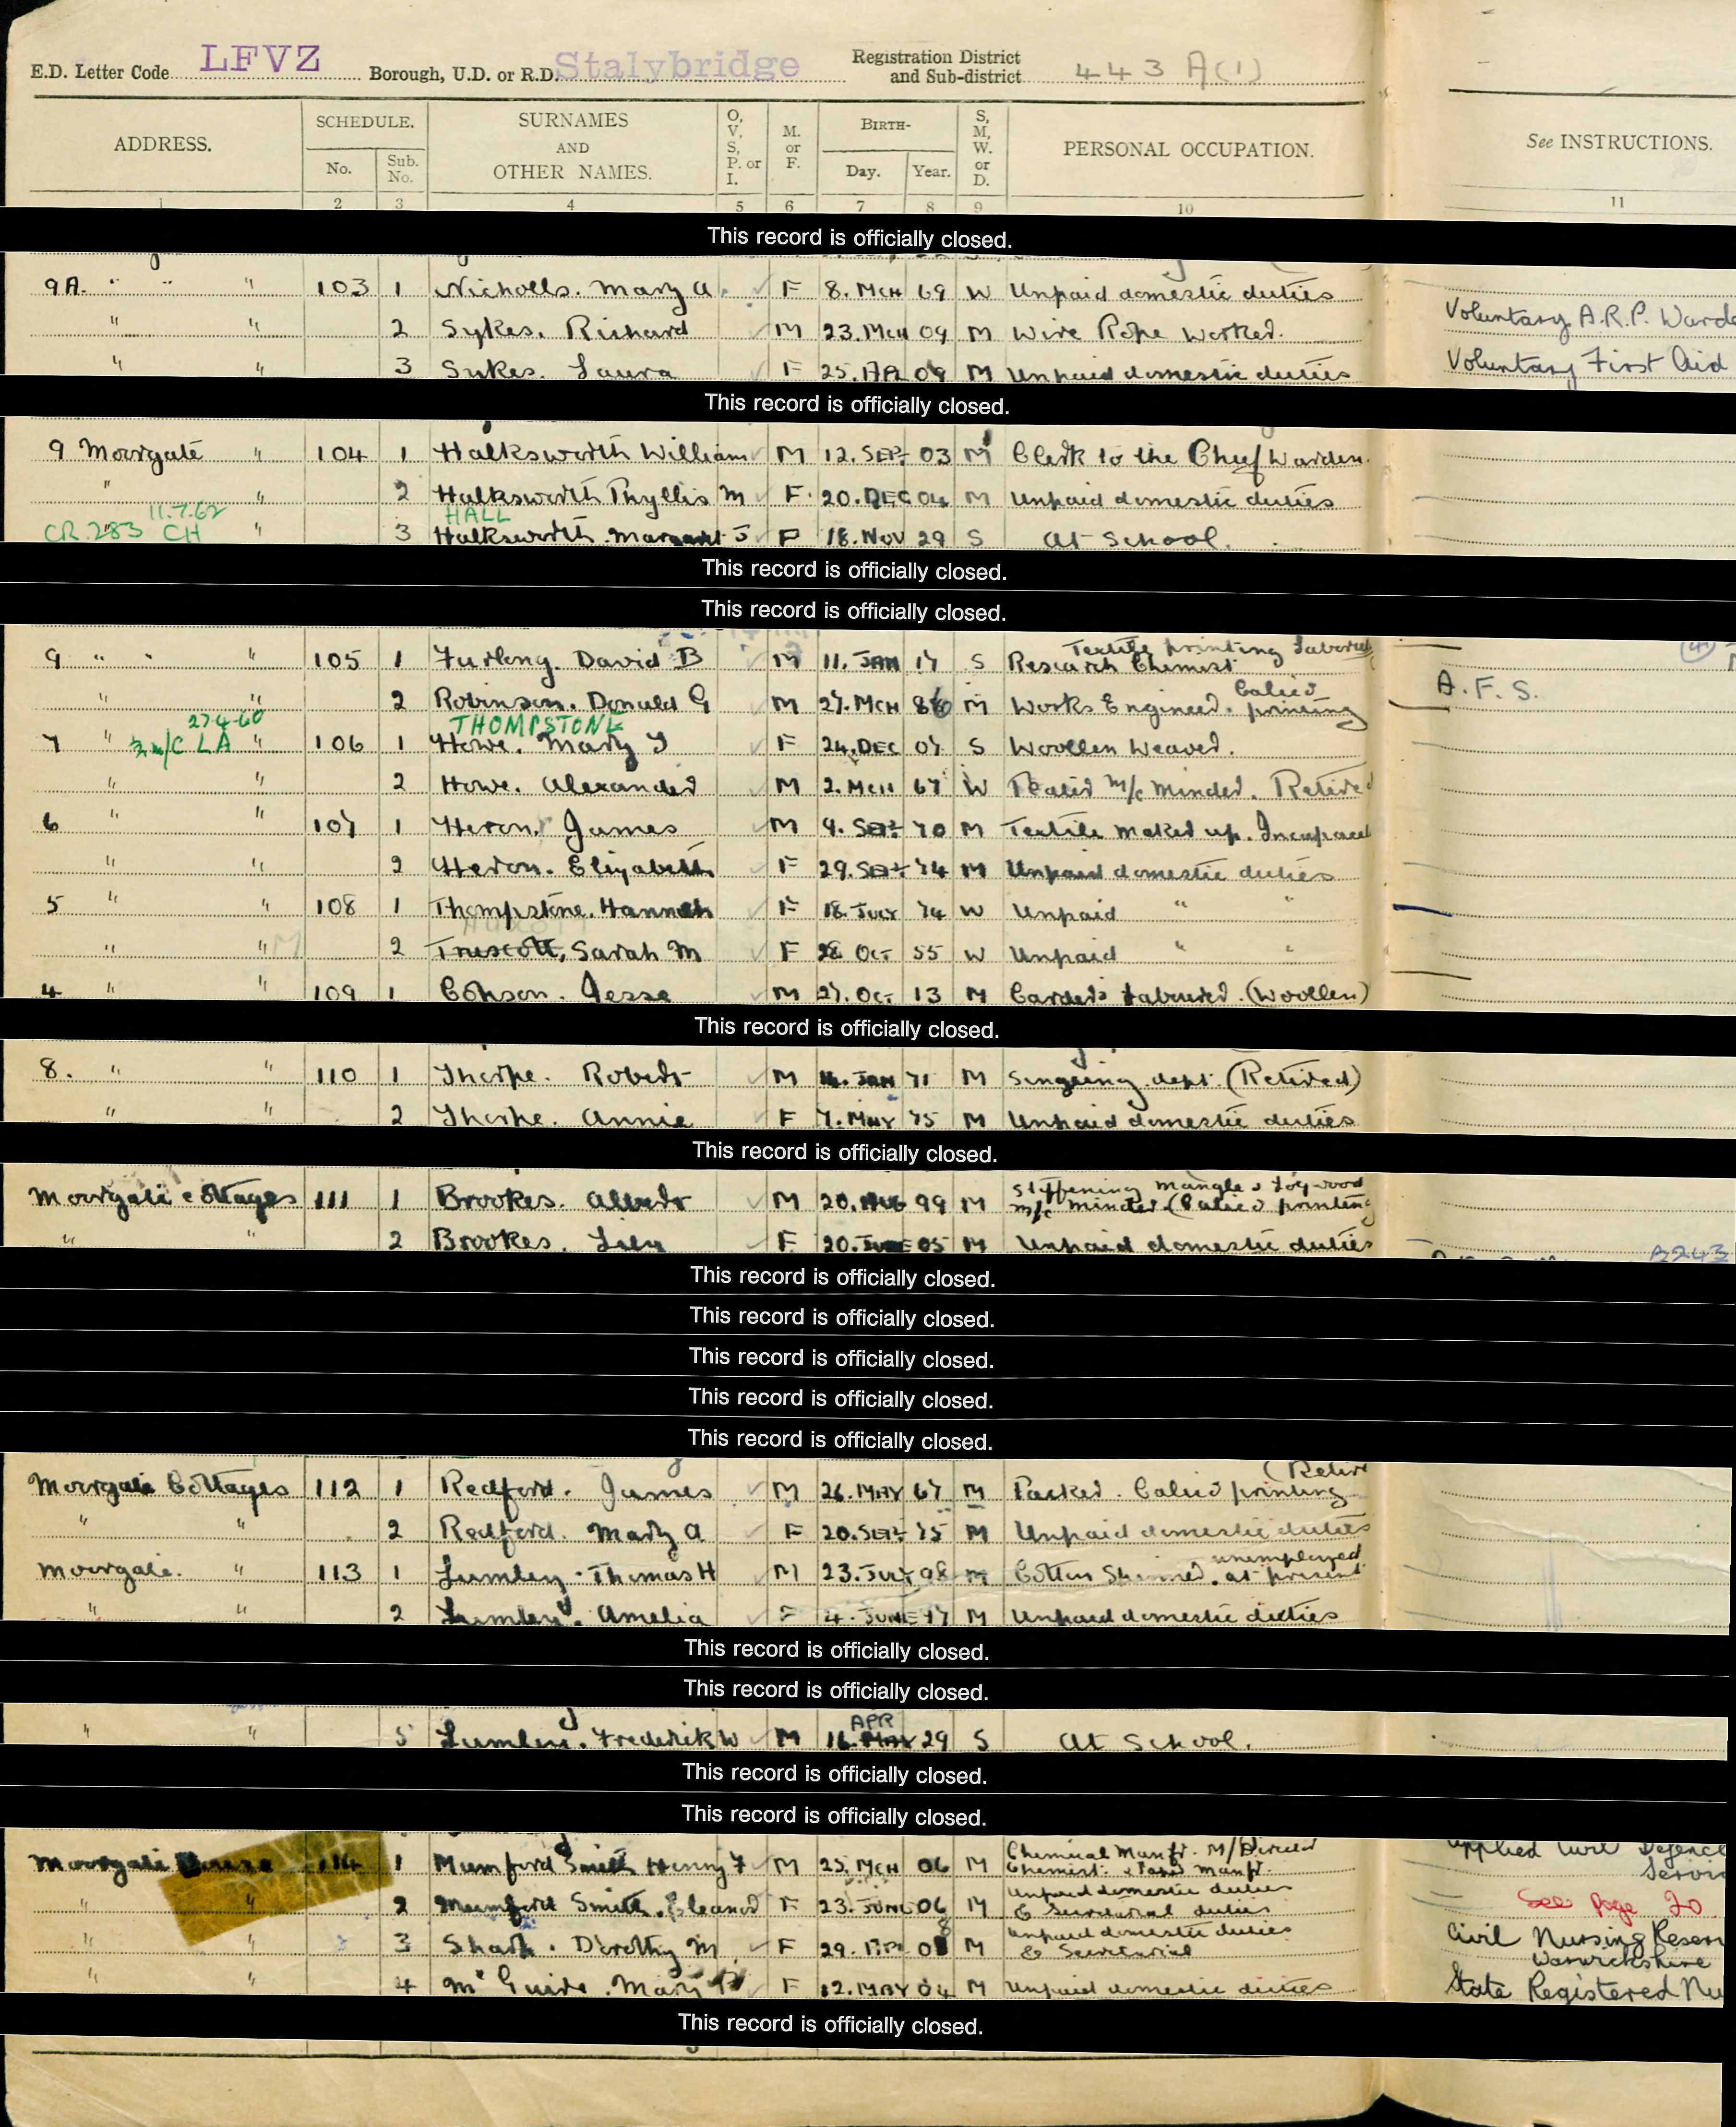 E.D. Letter Code LFVZ Borough, U.D. or R.D. Stalybridge Registration District and Sub-district 443 A(1)
ADDRESS. SCHEDULE. No. Sub. No. SURNAMES AND OTHER NAMES. O, V, S, P. or I. M. or F. BIRTH- Day. Year. S, M, W. or D. PERSONAL OCCUPATION. See INSTRUCTIONS.
1 2 3 4 5 6 7 8 9 10 11
This record is officially closed.
9A. " " " 103 1 Nicholls. Mary A. F 8. MCH 69 W Unpaid domestic duties
" " 2 Sykes. Richard M 23. MCH 09 M Wire Rope Worker. Voluntary A.R.P. Warde
" " 3 Sykes. Laura F 25. AP. 09 M Unpaid domestic duties Voluntary First Aid
This record is officially closed.
9 Moorgate " 104 1 Halksworth William M 12. SEP. 03 M Clerk to the Chief Warden.
" " 2 Halksworth Phyllis M F. 20. DEC 04 M Unpaid domestic duties
11.7.62 HALL
CR 283 CH " 3 Halksworth Margaret J F 18. NOV 29 S At School.
This record is officially closed.
This record is officially closed.
9 " " " 105 1 Furlong. David B M 11. JAN 17 S Research Chemist Textile printing
" " 2 Robinson. Donald G M 27. MCH 86 M Works Engineer. Calico printing A.F.S.
27-4-60 THOMPSTONE
7 " LA " 106 1 Howe. Mary F 24. DEC 07 S Woollen Weaver.
" " 2 Howe. Alexander M 2. MCH 67 W M/c Minder. Retired
6 " " 107 1 Heron. James M 4. SEP. 70 M Textile Maker up. Incapaci
" " 2 Heron. Elizabeth F 29. SEP. 74 M Unpaid domestic duties
5 " " 108 1 Thompstone. Hannah F 18. JULY 74 W Unpaid " "
" " 2 Truscott, Sarah M F 28 OCT 55 W Unpaid " "
4 " " 109 1 Jesse M 27. OCT. 13 M Carder's Labourer. (Woollen)
This record is officially closed.
8. " " 110 1 Thorpe. Robert M JAN 71 M Singeing dept. (Retired)
" " 2 Thorpe. Annie F 7. MAY 75 M Unpaid domestic duties
This record is officially closed.
Moorgate Cottages 111 1 Brookes. Albert M 20. AUG 99 M Stiffening Mangle & Logwood m/c Minder (Calico printing
" " 2 Brookes. Lily F 20. JUNE 05 M Unpaid domestic duties
This record is officially closed.
This record is officially closed.
This record is officially closed.
This record is officially closed.
This record is officially closed.
Moorgate Cottages 112 1 Redford. James M 26. MAY 67 M Packer. Calico printing (Retire
" " 2 Redford. Mary A F 20. SEP. 75 M Unpaid domestic duties
Moorgate. " 113 1 Lumley. Thomas H M 23. JULY 98 M Cotton unemployed at present
" " 2 Lumley. Amelia F 4. JUNE 97 M Unpaid domestic duties
This record is officially closed.
This record is officially closed.
APR
" " 5 Lumley. Frederick W M 16. MAY 29 S At School.
This record is officially closed.
This record is officially closed.
Moorgate House 114 1 Mumford Smith Henry F M 25. MCH 06 M Chemical Manfr. M/Director Chemist. Manfr. Applied Civil Defence Servic
" " 2 Mumford Smith. Eleanor F 23. JUNE 06 M Unpaid domestic duties & Secretarial duties See Page 20
" " 3 Dorothy M F 29. 08 M Unpaid domestic duties & Secretarial Civil Nursing Reserv Warwickshire
" " 4 Mc Guire. Mary F 12. MAY 04 M Unpaid domestic duties State Registered Nu
This record is officially closed.